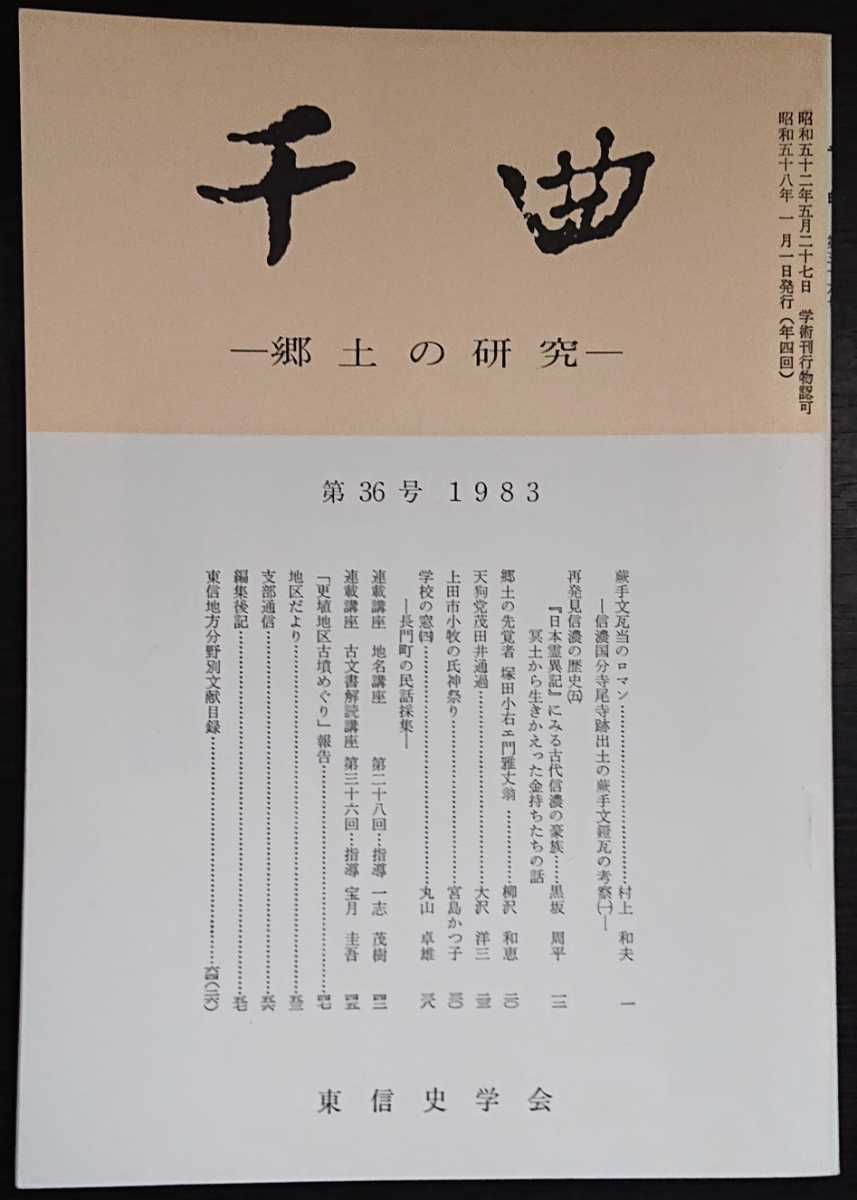 千曲
―郷土の研究―
昭和五十二年五月二十七日 学術刊行物認可
昭和五十八年 一月一日発行(年四回)
第36号 1983
蕨手文瓦当のロマン……村上 和夫 一
―信濃国分寺尾寺跡出土の蕨手文鐙瓦の考察㈠―
再発見信濃の歴史㈤
『日本霊異記』にみる古代信濃の豪族……黒坂 周平 一二
冥土から生きかえった金持ちたちの話
郷土の先覚者 塚田小右ェ門雅丈翁……柳沢 和恵 二〇
天狗党茂田井通過……大沢 洋三 二三
上田市小牧の氏神祭り……宮島かつ子 三〇
学校の窓㈣……丸山 卓雄 三八
―長門町の民話採集―
連載講座 地名講座 第二十八回…指導 一志 茂樹 四二
連載講座 古文書解読講座 第三十六回…指導 宝月 圭吾 四五
「更埴地区古墳めぐり」報告……四七
地区だより……五三
支部通信……五六
編集後記……五七
東信地方分野別文献目録……六四(二六)
東信史学会